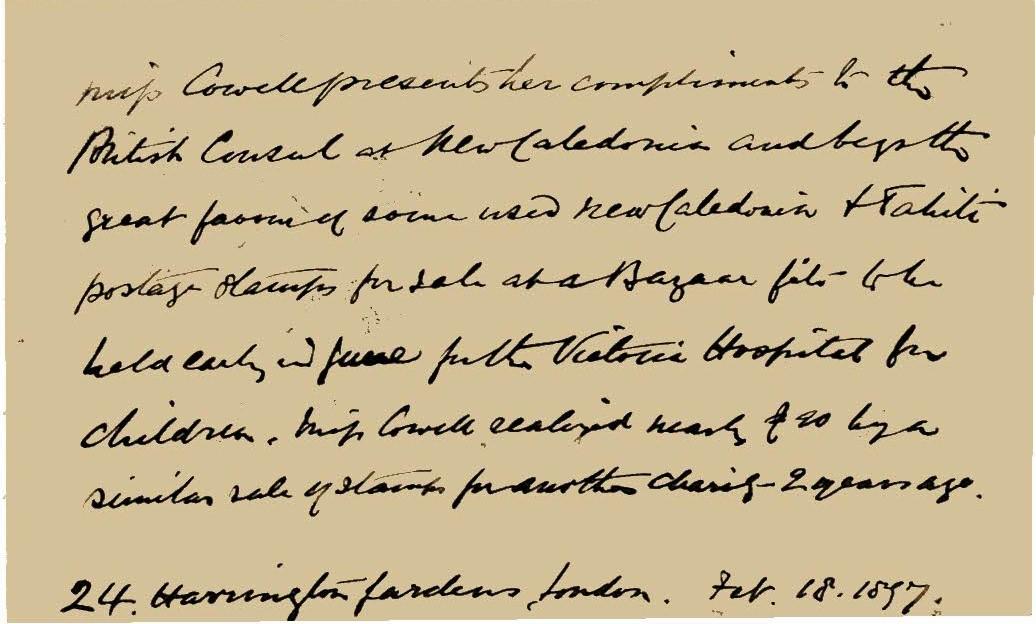 Miss Cowell presents her compliments to the
British Consul at New Caledonia and begs the
great favour of some used New Caledonia & Tahiti
postage stamps for sale at a Bazaar fête to be
held early in June for the Victoria Hospital for
children. Miss Cowell realized nearly £90 by a
similar sale of stamps for another charity 2 years ago.
24. Harrington Gardens, London. Feb. 18. 1897.